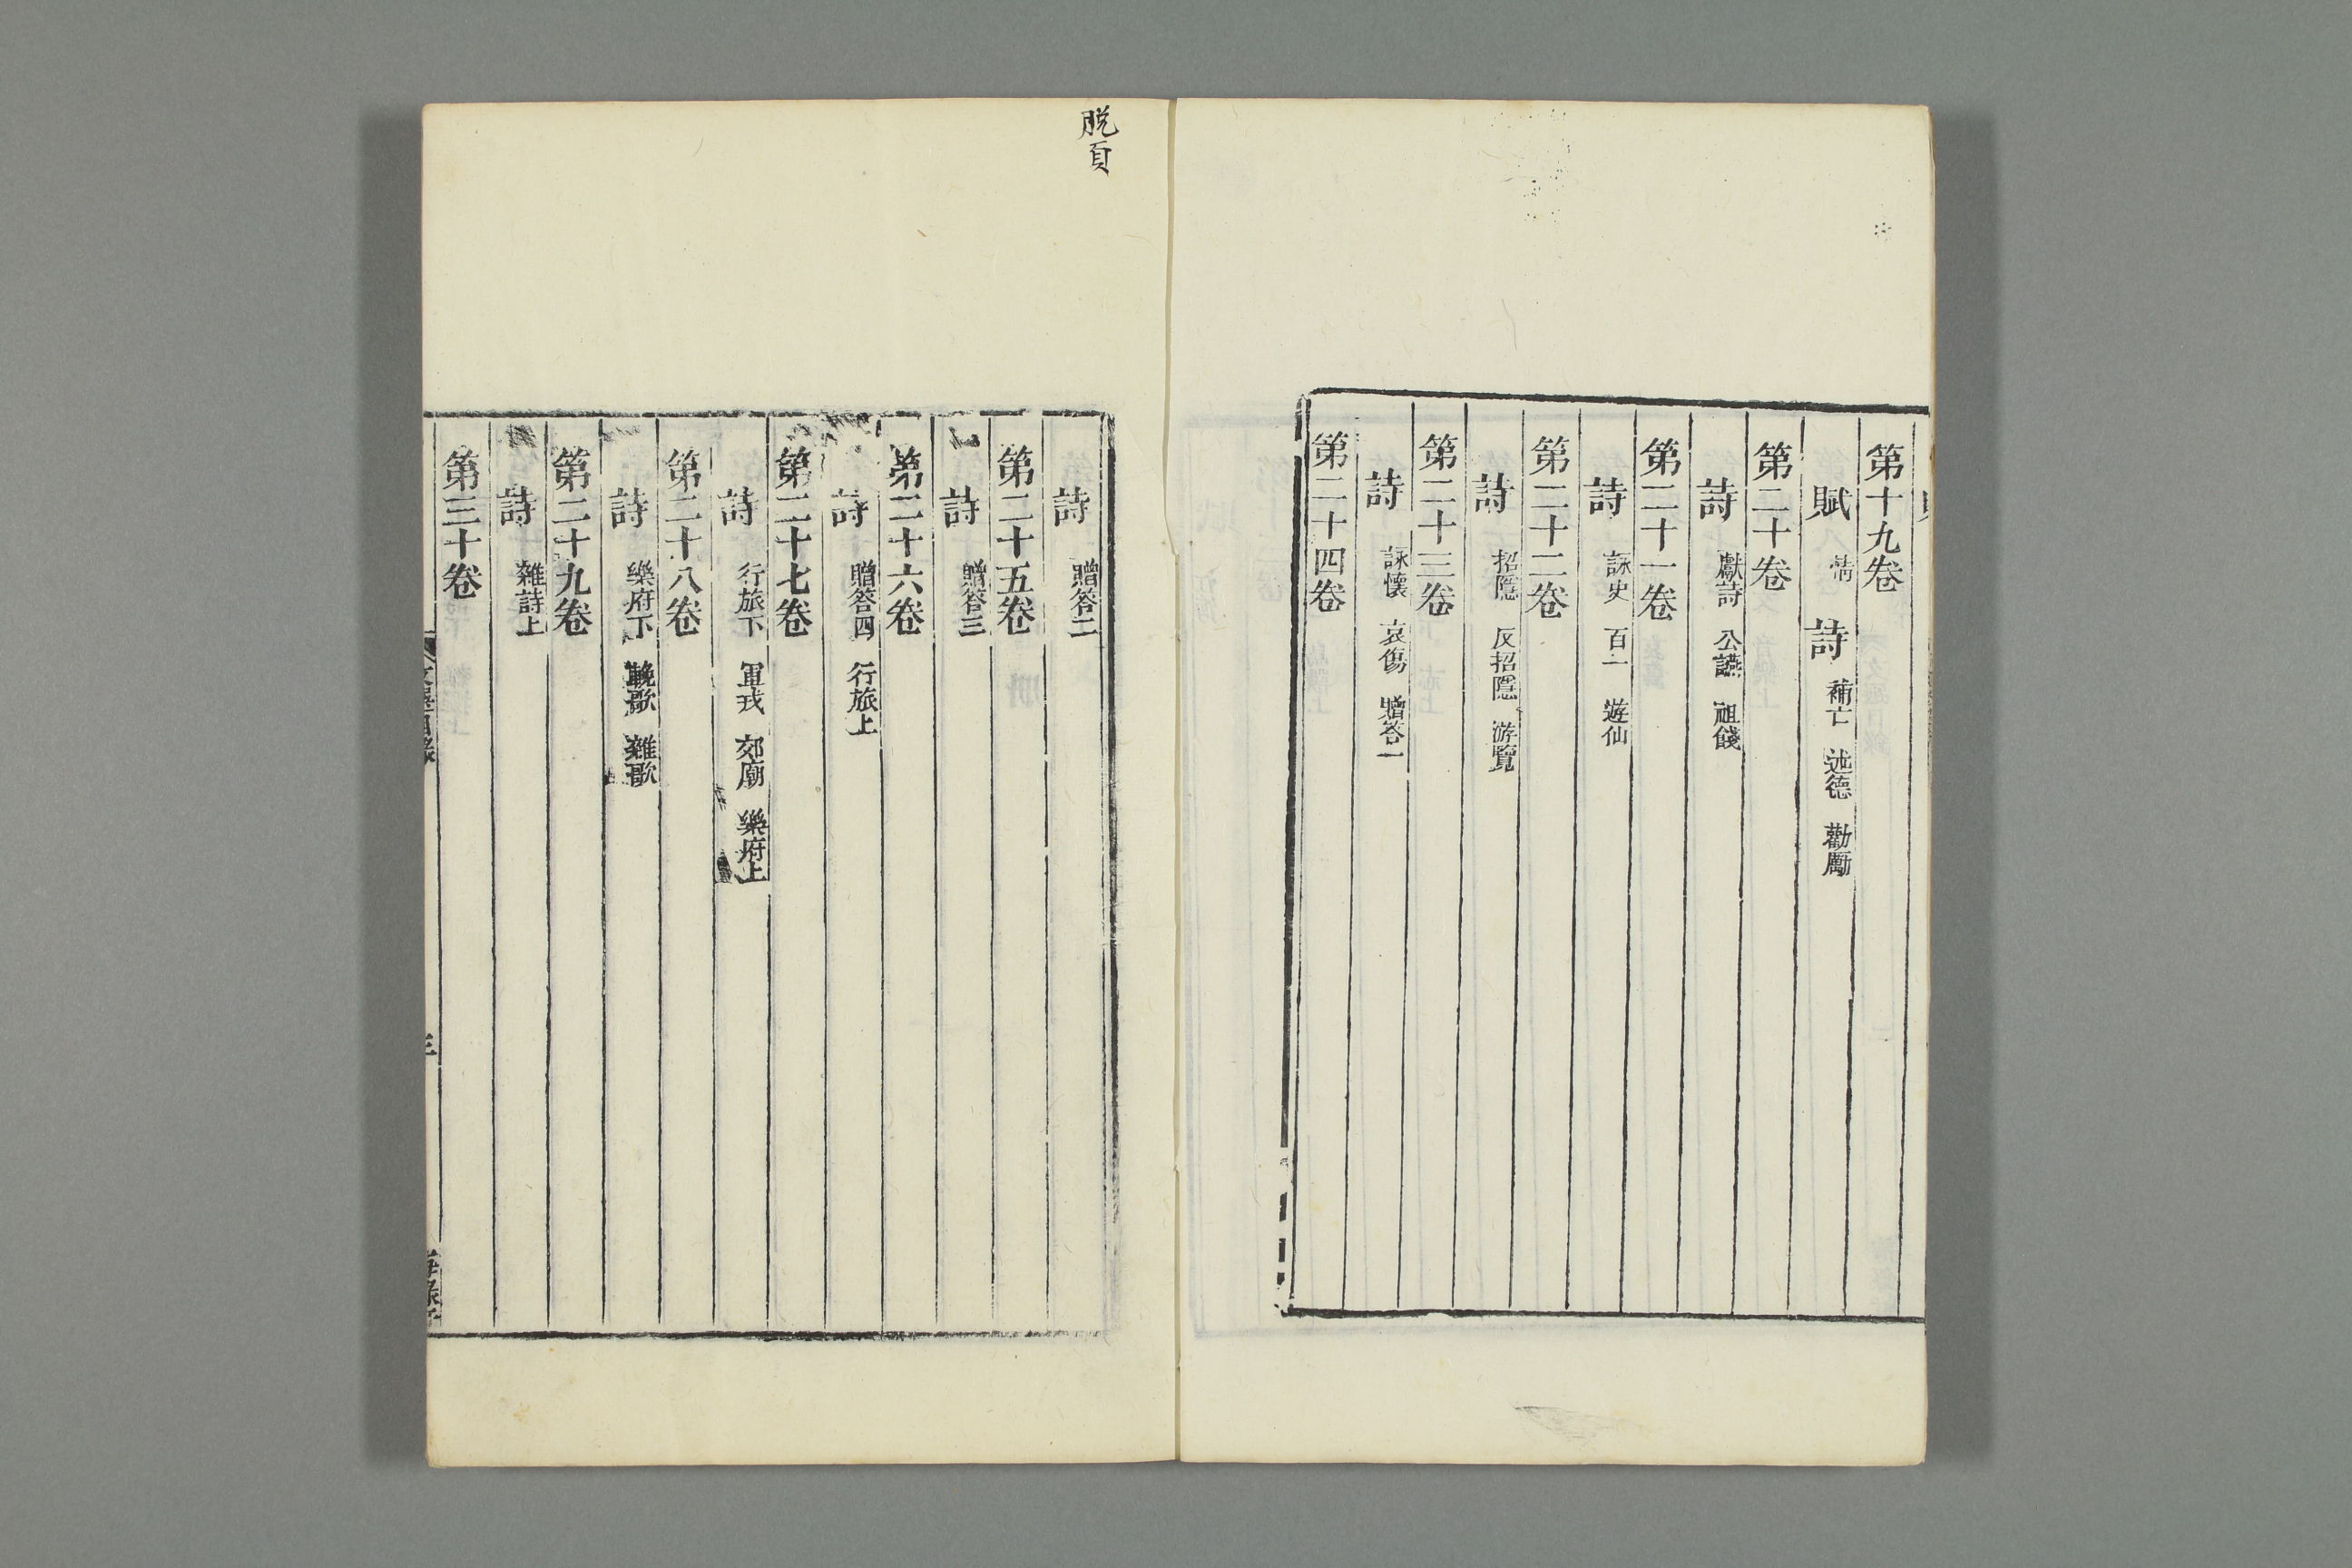 第十九卷
賦 情 詩 補亡 述德 勸勵
第二十卷
詩 獻詩 公讌 祖餞
第二十一卷
詩 詠史 百一 遊仙
第二十二卷
詩 招隱 反招隱 游覽
第二十三卷
詩 詠懷 哀傷 贈答一
第二十四卷
脫頁
詩 贈答二
第二十五卷
詩 贈答三
第二十六卷
詩 贈答四 行旅上
第二十七卷
詩 行旅下 軍戎 郊廟 樂府上
第二十八卷
詩 樂府下 輓歌 雜歌
第二十九卷
詩 雜詩上
第三十卷
文選目錄 三